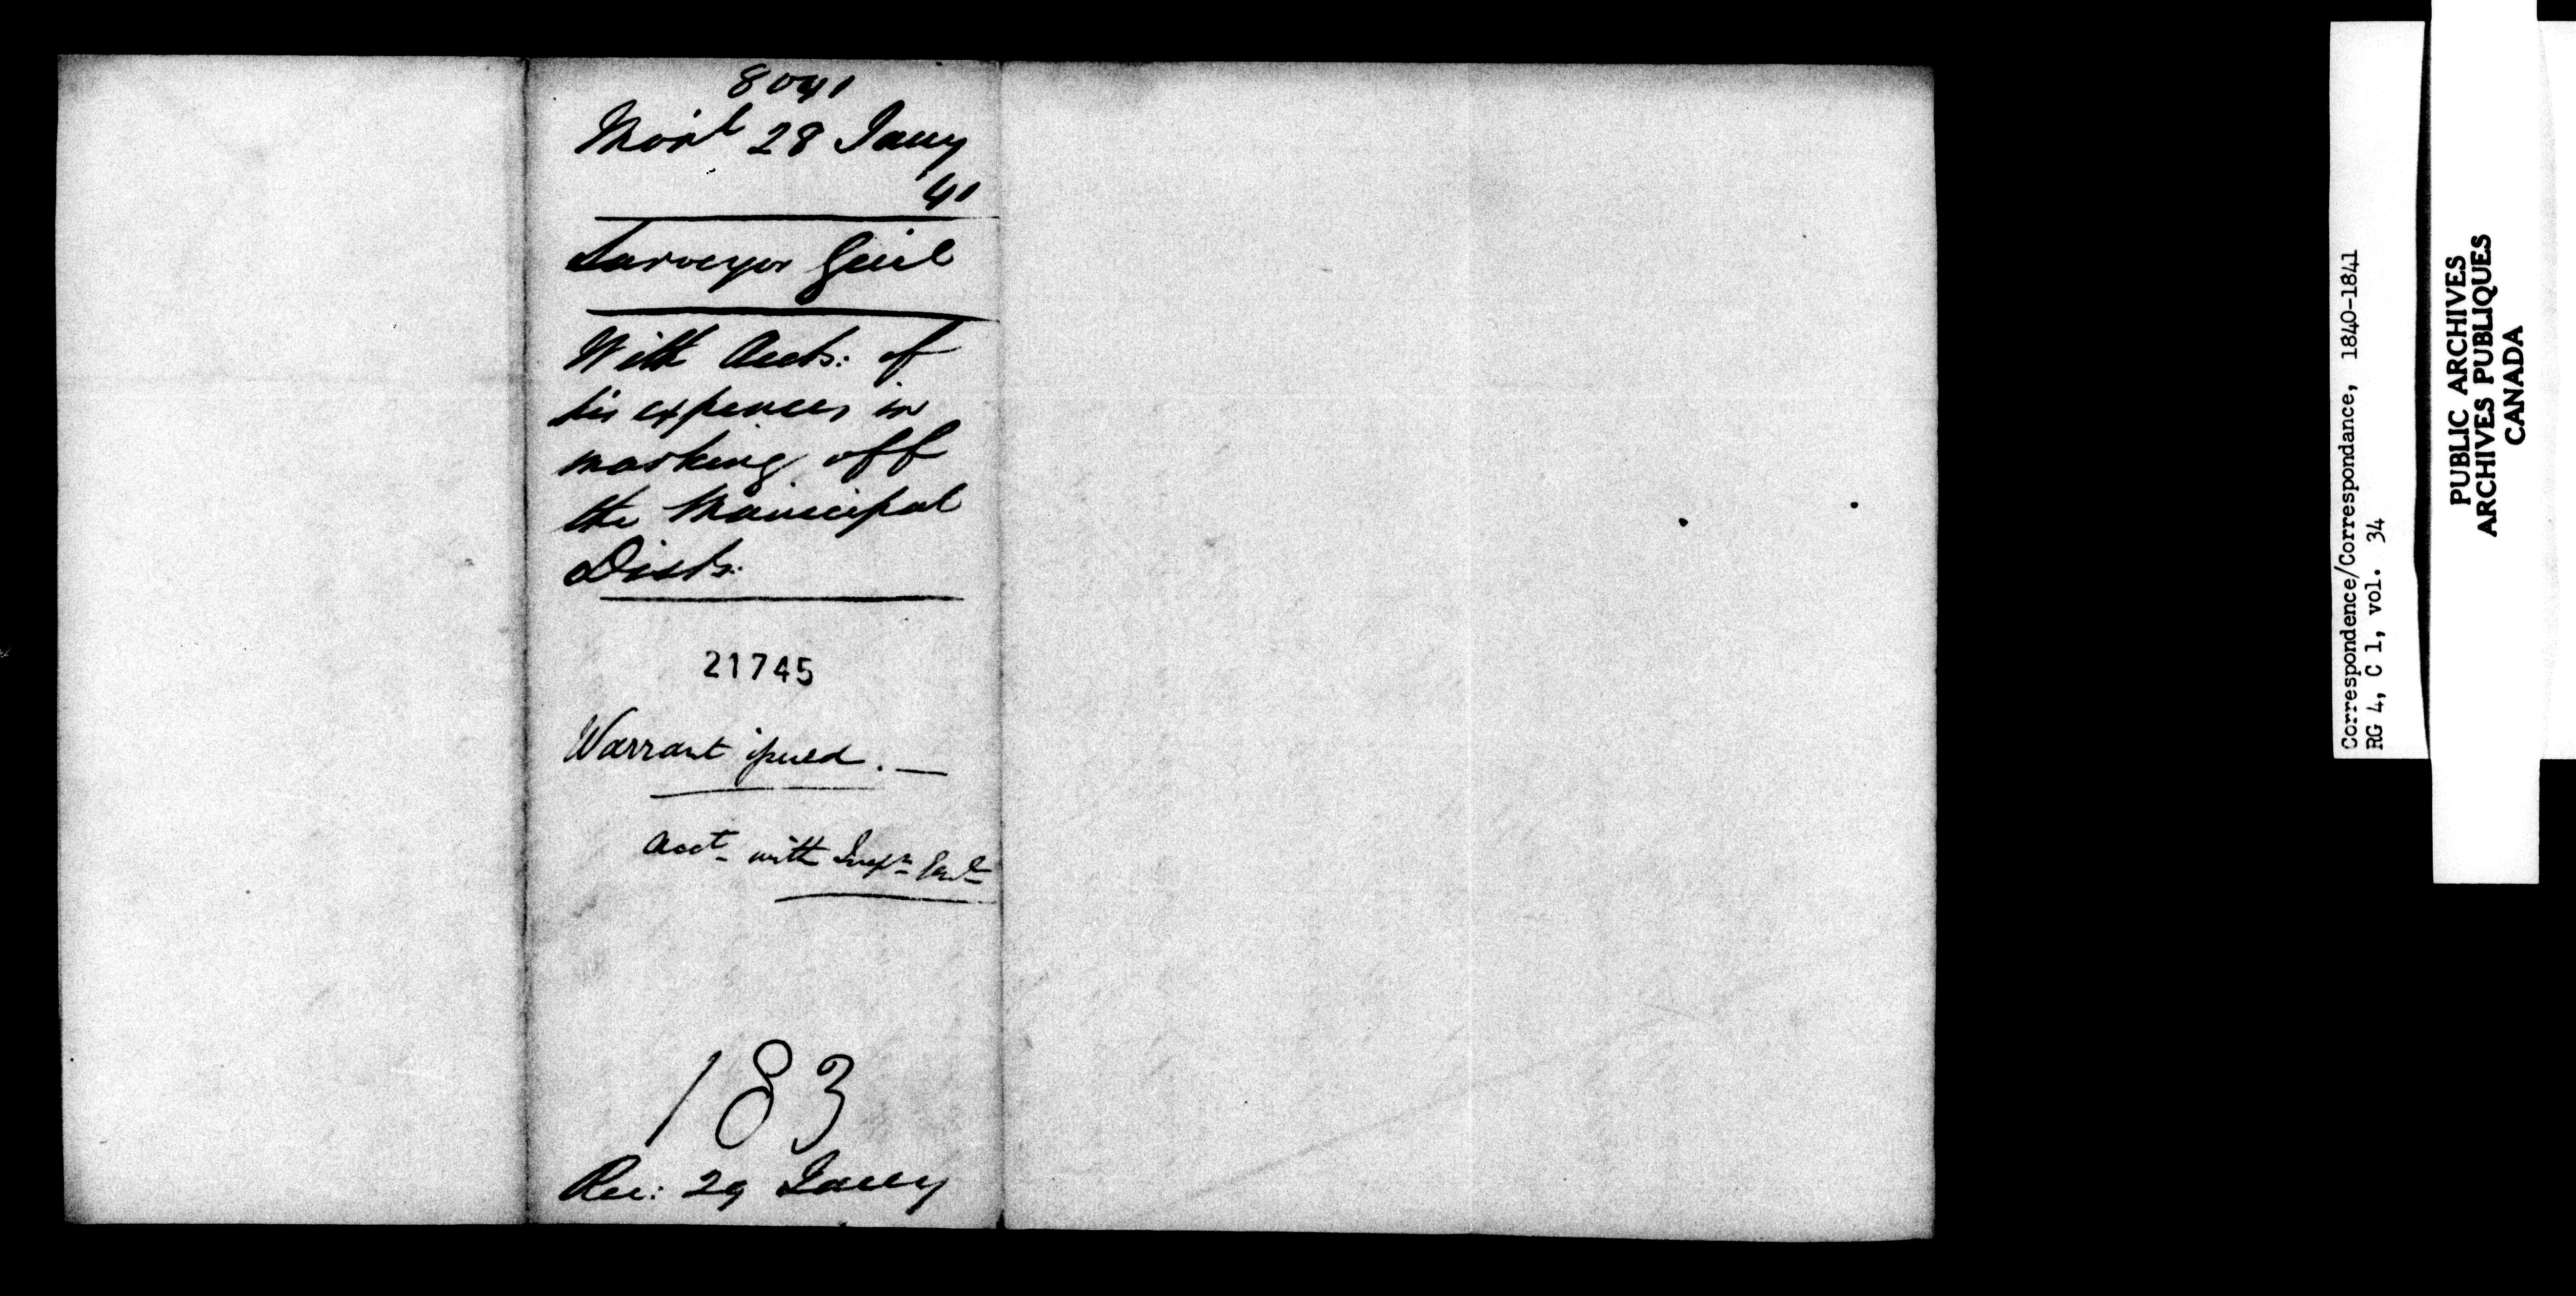 8041
Mon'l 28 Jany
41
Surveyor Genl
With Accts: of
his expences in
marking off
the Municipal
Dists:
21745
Warrant issued. —
Acct with Inspr Genl
183
Rec: 29 Jany
Correspondence/Correspondance, 1840-1841
RG 4, C 1, vol. 34
PUBLIC ARCHIVES
ARCHIVES PUBLIQUES
CANADA